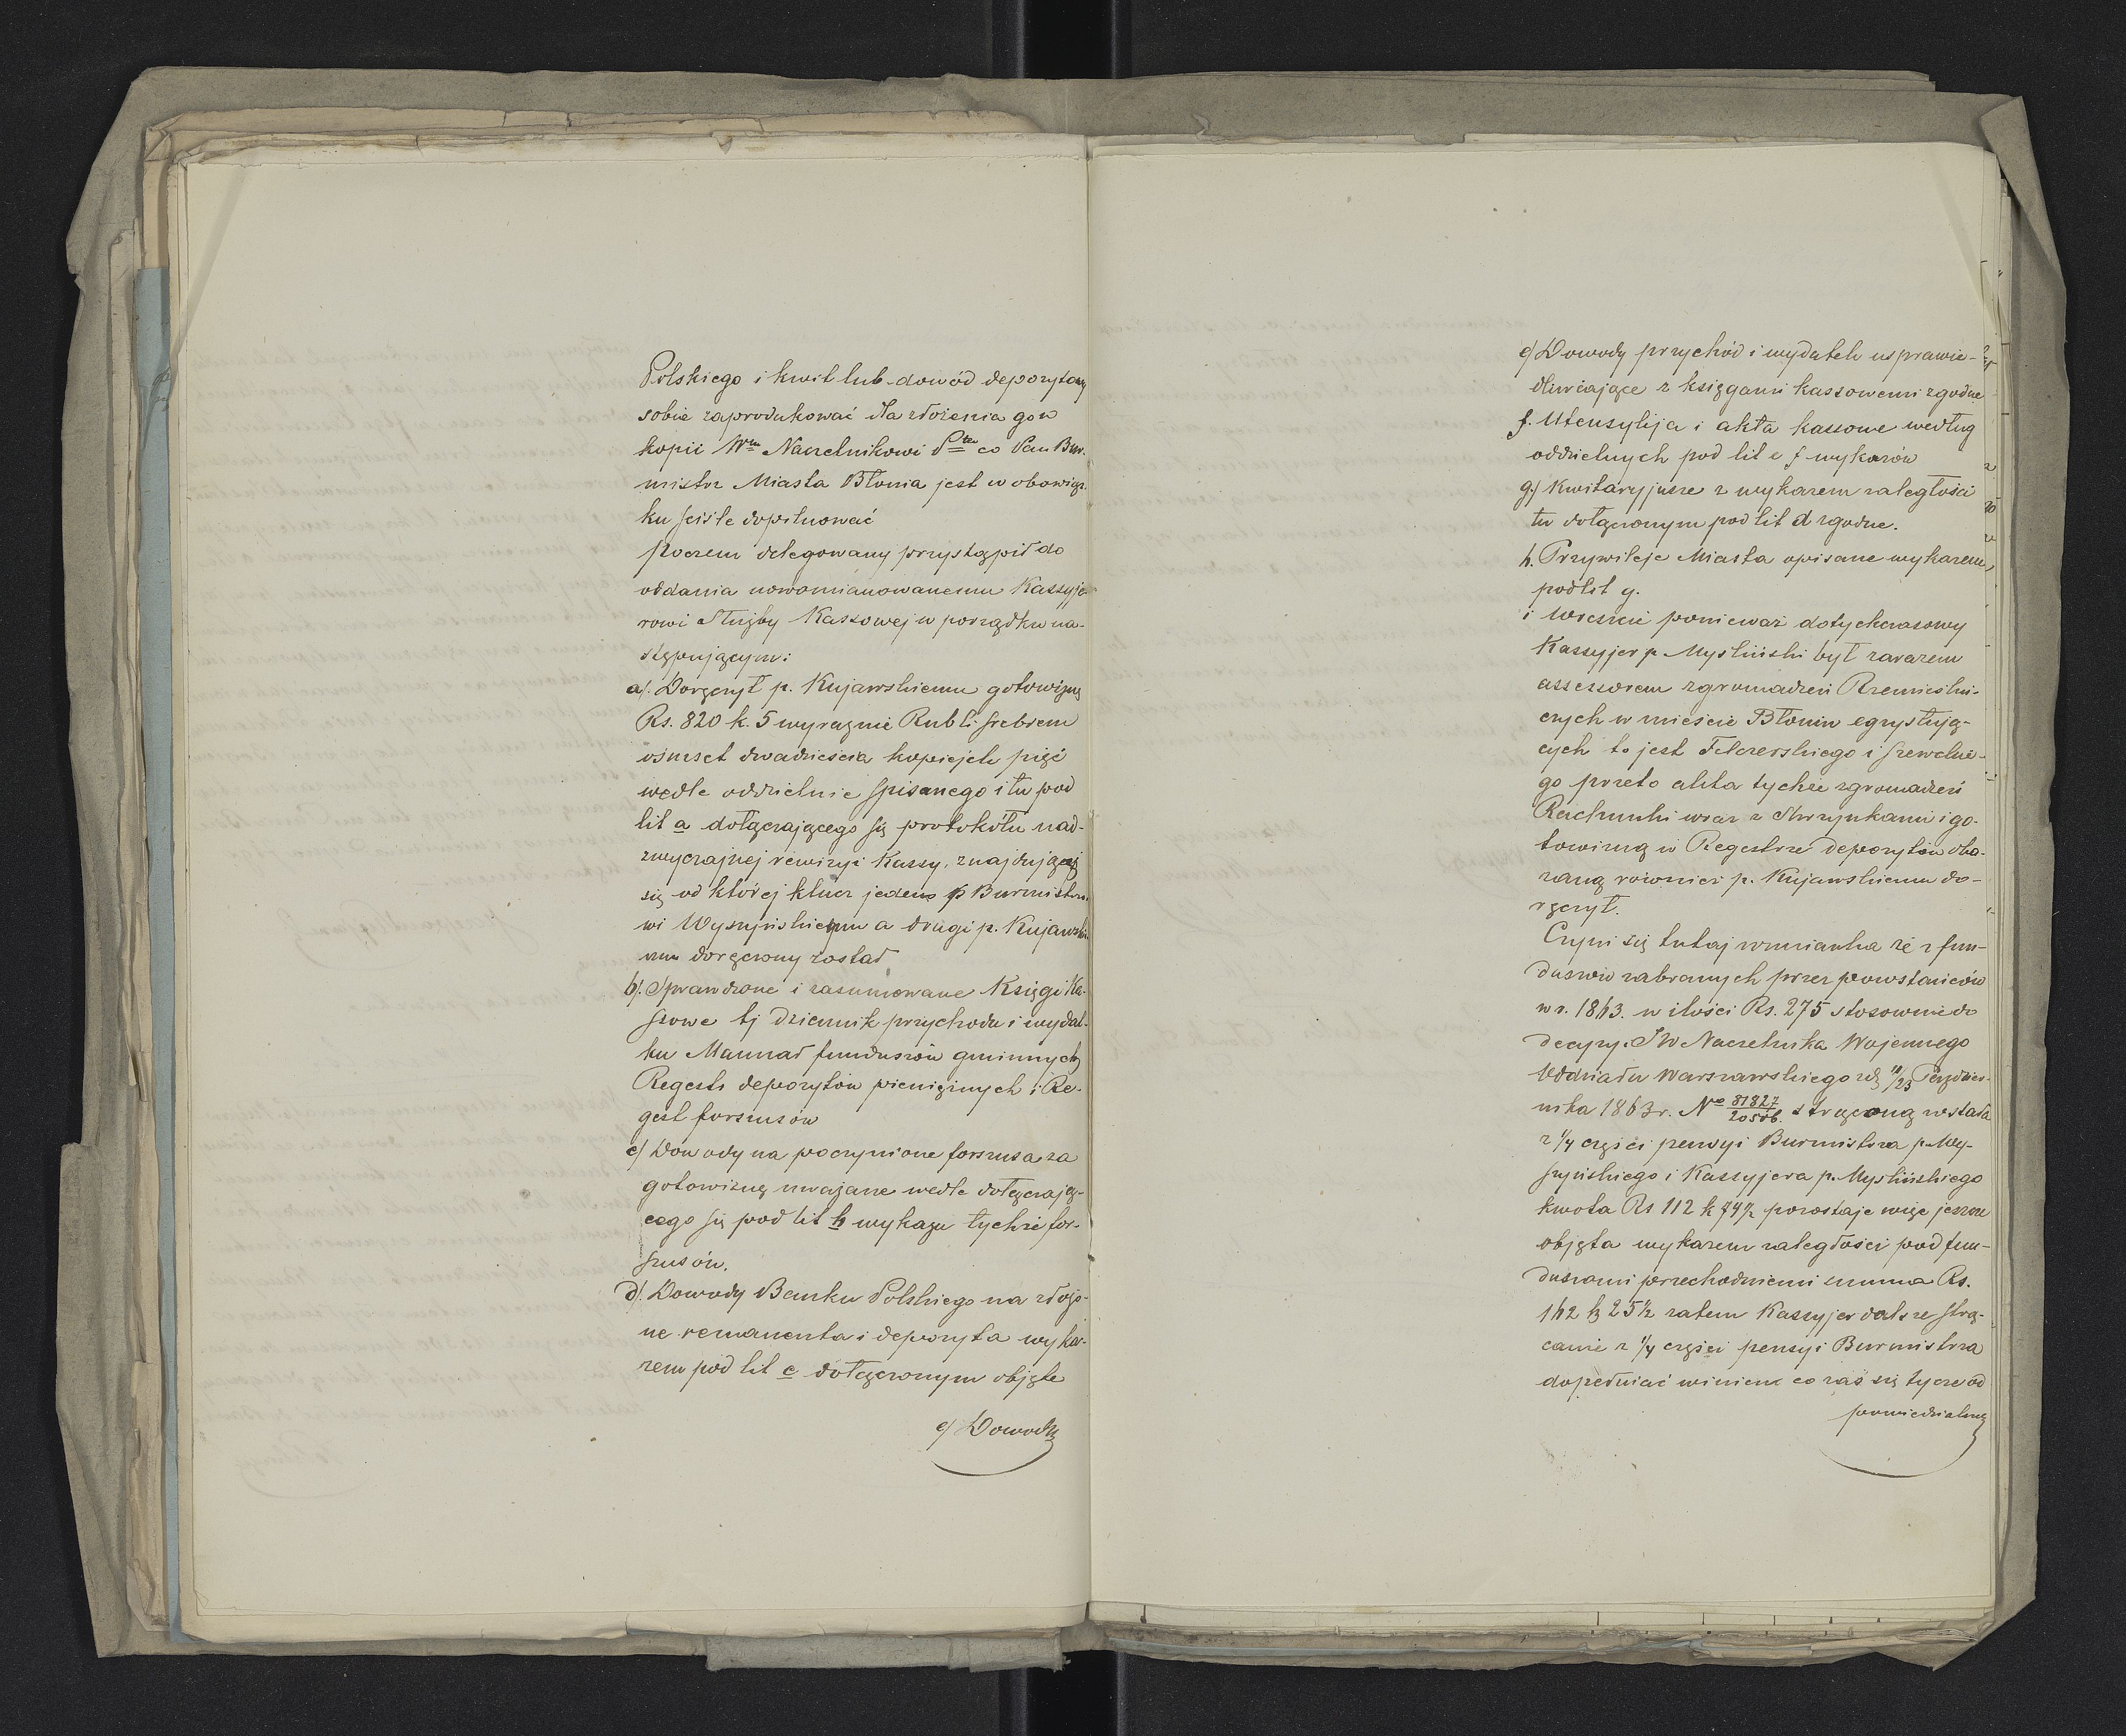 Polskiego i kwit lub dowód depozytowy
sobie zaprodukować dla złożenia go w
kopii Wmu Naczelnikowi Ptu co Pan Bur-
mistrz Miasta Błonia jest w obowiąz-
ku ściśle dopilnować
poczem delegowany przystąpił do
oddania nowomianowanemu Kassyje-
rowi Służby Kassowej w porządku na-
stępującym:
a/. Doręczył p. Kujawskiemu gotowiznę
Rs. 820 k. 5 wyraznie Rubli srebrem
ośmset dwadzieścia kopiejek pięć
wedle oddzielnie spisanego i tu pod
lit a dołączającego się protokółu nad-
zwyczajnej rewizyi Kassy, znajdującej
się od której klucz jeden p Burmistrzo-
wi Wyszyńskiemu a drugi p. Kujawskie
mu doręczony został
b/. Sprawdzone i zasumowane Księgi Ka-
ssowe tj dziennik przychodu i wydat-
ku Manuał funduszów gminnych
Regestr depozytów pieniężnych i Re-
gest forszusów
c/ Dowody na poczynione forszusa za
gotowiznę uważane wedle dołączają-
cego się pod lit b wykazu tychże for-
szusów.
d/. Dowody Banku Polskiego na złożo-
ne remanenta i depozyta wyka-
zem pod lit c dołączonym objęte
e/ Dowody
e/ Dowody przychód i wydatek usprawie-
dliwiające z księgami kassowemi zgodne
f. Utensylija i akta kassowe według
oddzielnych pod lit e f wykazów
g./ Kwitaryjusze z wykazem zaległości
tu dołączonym pod lit d zgodne.
h. Przywileje Miasta opisane wykazem
pod lit g.
i Wreszcie ponieważ dotychczasowy
Kassyjer p. Mysliński był zarazem
assessorem zgromadzeń Rzemieślni-
czych w mieście Błoniu egzystują-
cych to jest Felczerskiego i szewckie-
go przeto akta tychże zgromadzeń
Rachunki wraz z Skrzynkami i go-
towizną w Regestrze depozytów oka-
zaną również p. Kujawskiemu do-
ręczył.
Czyni się tutaj wzmianka że z fun-
duszów zabranych przez powstańców
w r. 1863. w ilości Rs. 275 stosownie do
decyzyi JW Naczelnika Wojennego
Oddziału Warszawskiego z d 11/23 Paździer-
nika 1863 r. No 81827/20586. strąconą została
z 1/4 części pensyi Burmistrza p. Wy-
szyńskiego i Kassyjera p. Myslińskiego
kwota Rs 112 k 74 1/2 pozostaje więc jeszcze
objęta wykazem zaległości pod fun-
duszami przechodniemi summa Rs.
162 k 25 1/2 zatem Kassyjer dalsze strą-
canie z 1/4 części pensyi Burmistrza
dopełniać winien co zaś się tycze od
powiedzialną